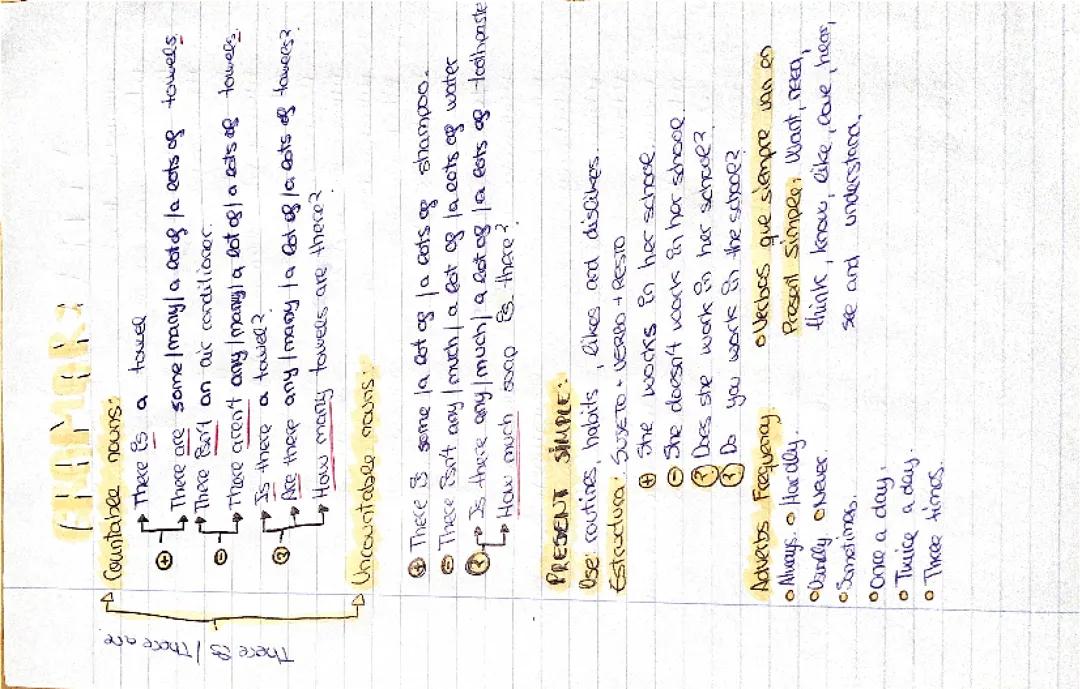 GRAMMAR:
There is / There are
Countable nouns:
+ There is a towel
There are some/many/a lot of/a lots of towels.
- There isn't an air conditioner.
There aren't any/many/a lot of/a lots of towels.
? Is there a towel?
Are there any/many/a lot of/a lots of towels?
How many towels are there?
Uncountable nouns:
+ There is some/a lot of/a lots of shampoo.
- There isn't any/much/a lot of/a lots of water
? Is there any/much/a lot of/a lots of toothpaste
How much soap is there?
PRESENT SIMPLE:
Use: routines, habits, likes and dislikes.
Estructura: SUJETO + VERBO + RESTO
+ She works in her school.
- She doesn't work in her school.
? Does she work in her school?
? Do you work in the school?
Adverbs Frequency:
• Always. • Hardly.
• Usually • Never.
• Sometimes.
• Once a day.
• Twice a day.
• Three times.
• Verbos que siempre van en
Present Simple: Want, need,
think, know, like, love, hear,
see and understand.